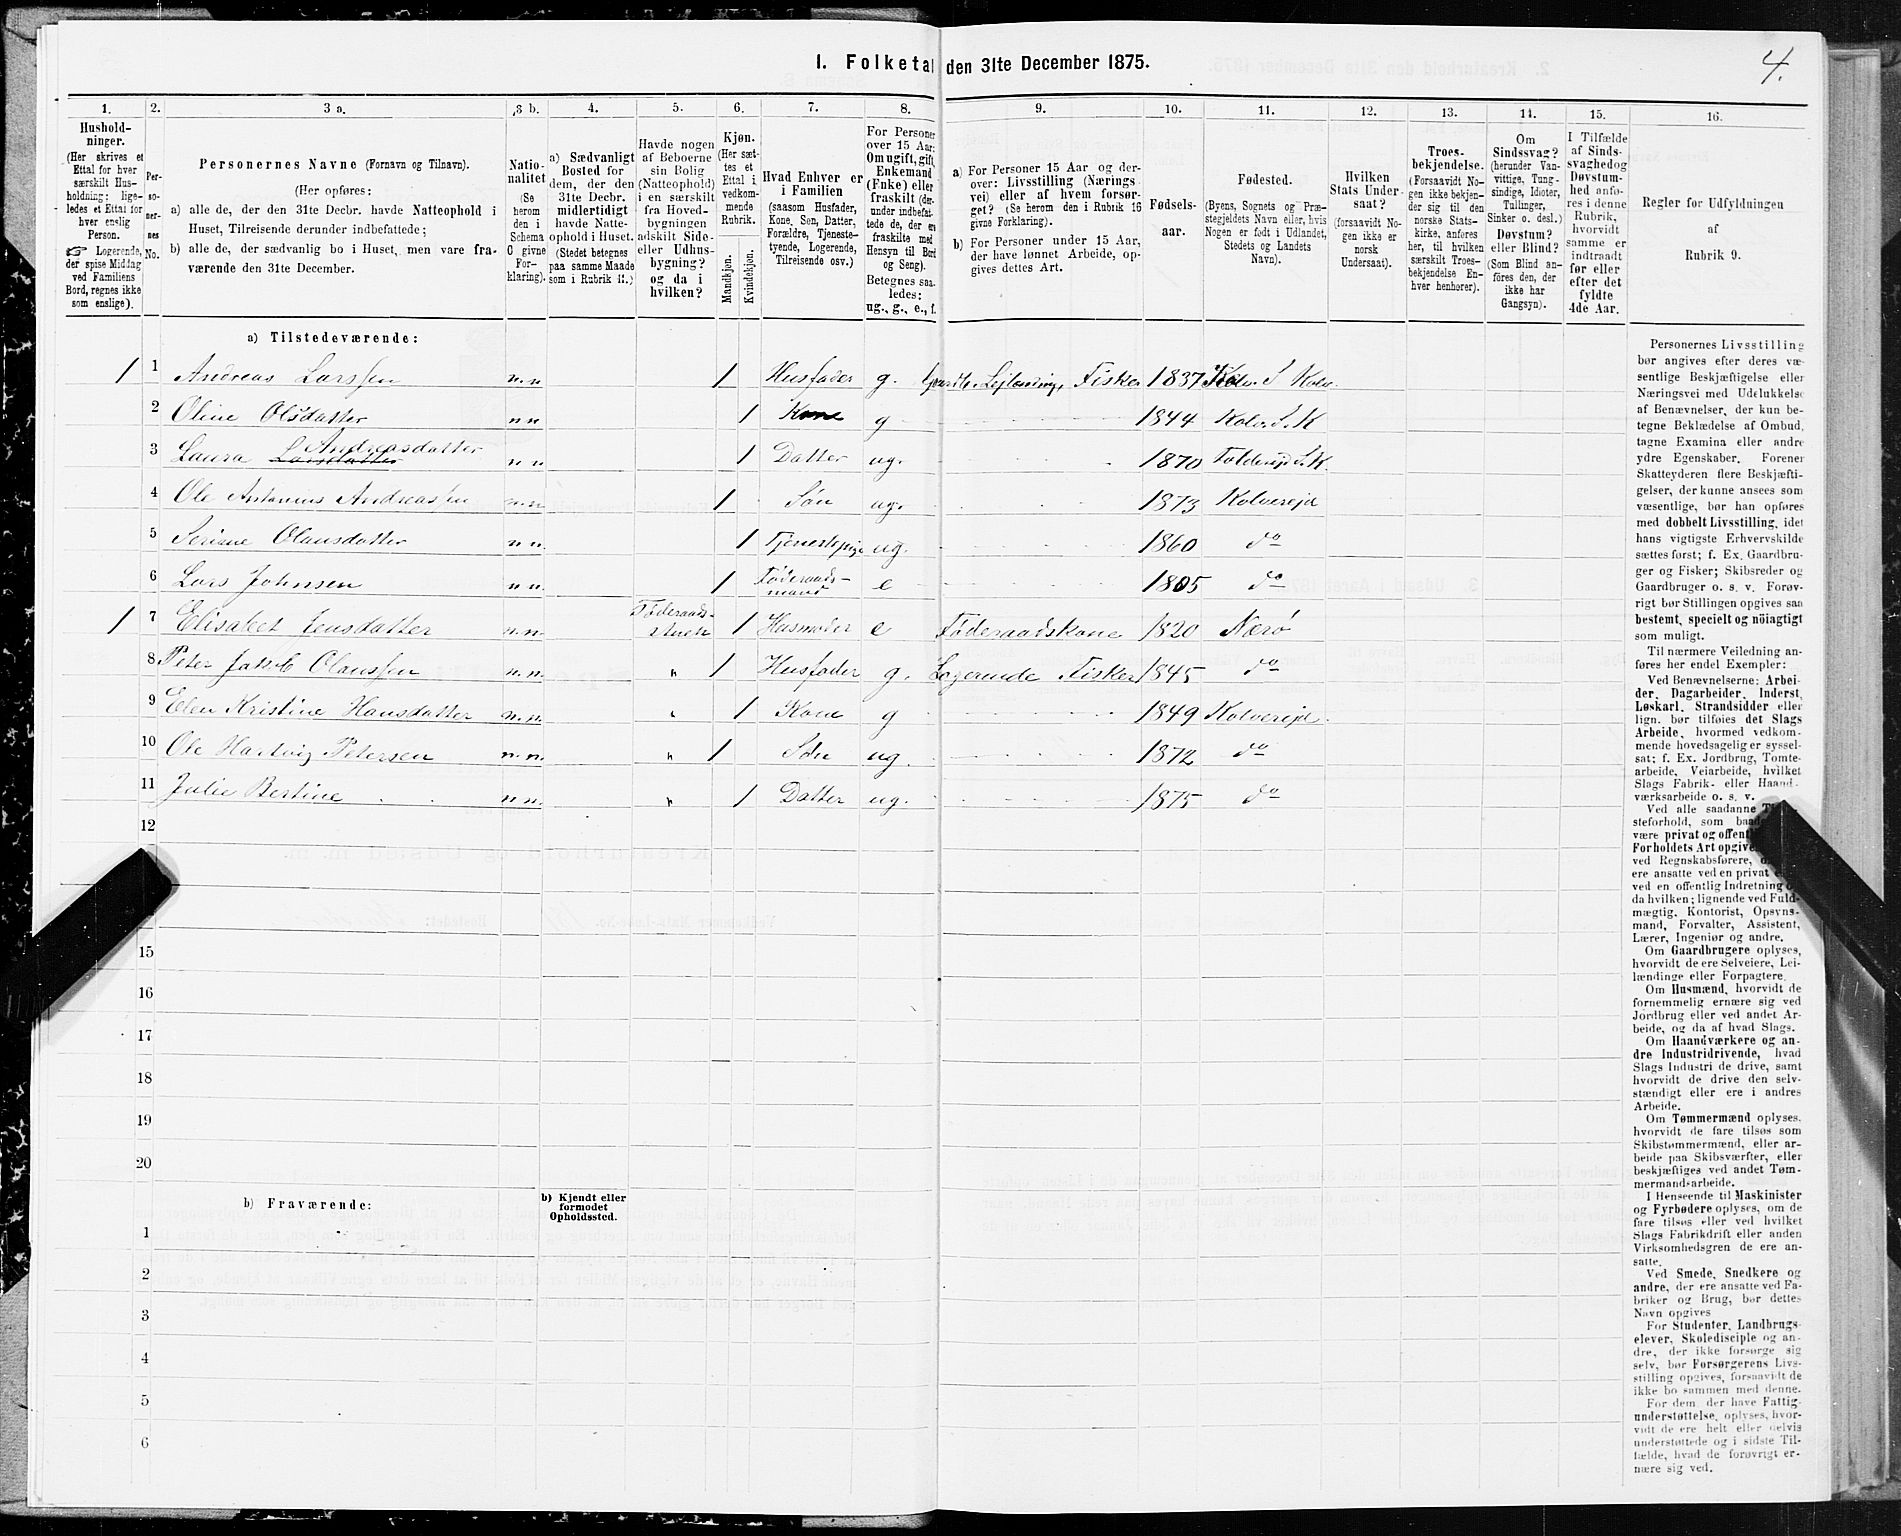 4.
I. Folketal den 31te December 1875.
1. 2. 3 a. 3 b. 4. 5. 6. 7. 8. 9. 10. 11. 12. 13. 14. 15. 16.
Hushold-
ninger.
(Her skrives et
Ettal for hver
særskilt Hus-
holdning; lige-
ledes et Ettal for
hver enslig
Person.
☞ Logerende,
der spise Middag
ved Familiens
Bord, regnes ikke
som enslige).
Per-
so-
ner-
nes
No.
Personernes Navne (Fornavn og Tilnavn).
(Her opføres:
a) alle de, der den 31te Decbr. havde Natteophold i
Huset, Tilreisende derunder indbefattede;
b) alle de, der sædvanlig bo i Huset, men vare fra-
værende den 31te December.
Natio-
nalitet
(Se
herom
den i
Schema
C givne
For-
klaring).
a) Sædvanligt
Bosted for
dem, der den
31te Decbr.
midlertidigt
havde Natte-
ophold i Huset.
(Stedet betegnes
paa samme Maade
som i Rubrik 11.)
Havde nogen
af Beboerne
sin Bolig
(Natteophold)
i en særskilt
fra Hoved-
bygningen
adskilt Side-
eller Udhus-
bygning?
og da i
hvilken?
Kjøn.
(Her sæt-
tes et
Ettal i
vedkom-
mende
Rubrik.
Mandkjøn.
Kvindekjøn.
Hvad Enhver er
i Familien
(saasom Husfader,
Kone, Søn, Datter,
Forældre, Tjeneste-
tyende, Logerende,
Tilreisende osv.)
For Personer
over 15 Aar:
Om ugift, gift,
Enkemand
(Enke) eller
fraskilt (der-
under indbefat-
tede de, der ere
fraskilte med
Hensyn til Bord
og Seng).
Betegnes saa-
ledes:
ug., g., e., f.
a) For Personer 15 Aar og der-
over: Livsstilling (Nærings-
vei) eller af hvem forsør-
get? (Se herom den i Rubrik 16
givne Forklaring).
b) For Personer under 15 Aar,
der have lønnet Arbeide, op-
gives dettes Art.
Fødsels-
aar.
Fødested.
(Byens, Sognets og Præ-
stegjeldets Navn eller, hvis
Nogen er født i Udlandet,
Stedets og Landets
Navn).
Hvilken
Stats Under-
saat?
(forsaavidt No-
gen ikke er
norsk
Undersaat).
Troes-
bekjendelse.
(Forsaavidt No-
gen ikke bekjen-
der sig til den
norske Stats-
kirke, anføres
her, til hvilken
særskilt Troes-
bekjendelse En-
hver henhører).
Om
Sindssvag?
(herunder Van-
vittige, Tung-
sindige, Idioter,
Tullinger,
Sinker o. desl.)
Døvstum?
eller Blind?
(Som Blind an-
føres den, der
ikke har
Gangsyn).
I Tilfælde
af Sinds-
svaghed og
Døvstum-
hed anfø-
res i denne
Rubrik,
hvorvidt
samme er
indtraadt
før eller
efter det
fyldte
4de Aar.
Regler for Udfyldningen
af
Rubrik 9.
a) Tilstedeværende:
1 1 Andreas Larssen n.n 1 Husfader g. Gaardbr. Lejlænding, Fisker 1837 Kolv. S. Kolv.
2 Oline Olsdatter n n 1 Kone g 1844 Kolv. S. K
3 Laura Larsdatter Andreasdatter n n. 1 Datter ug. 1870 Folderejd S. K
4 Ole Antonius Andreassen n.n. 1 Søn ug. 1873 Kolverejd
5 Serine Olausdatter n.n. 1 Tjenestepige ug. 1860 do
6 Lars Johnsen n n. 1 Føderaads-
mand e 1805 do
1 7 Elisabet Jensdatter n.n. Føderaads-
stuen 1 Husmoder e Føderaadskone 1820 Nærø
8 Peter Jakob Olaussen n.n. " 1 Husfader g. Logerende Fisker 1845 do
9 Elen Kristine Hansdatter n.n. " 1 Kone g 1849 Kolverejd.
10 Ole Hartvig Petersen n.n. " 1 Søn ug. 1872 do
11 Julie Bertine n n. " 1 Datter ug. 1875 do
12
15
16
17
18
19
20
b) Fraværende:
b) Kjendt eller
formodet
Opholdssted.
1
2
3
4
5
6
Personernes Livsstilling
bør angives efter deres væ-
sentlige Beskjæftigelse eller
Næringsvei med Udelukkelse
af Benævnelser, der kun be-
tegne Beklædelse af Ombud,
tagne Examina eller andre
ydre Egenskaber. Forener
Skatteyderen flere Beskjæfti-
gelser, der kunne ansees som
væsentlige, bør han opføres
med dobbelt Livsstilling, idet
hans vigtigste Erhvervskilde
sættes først; f. Ex. Gaardbru-
ger og Fisker; Skibsreder og
Gaardbruger o. s. v. Forøv-
rigt bør Stillingen opgives saa
bestemt, specielt og nöiagtigt
som muligt.
Til nærmere Veiledning an-
føres her endel Exempler:
Ved Benævnelserne: Arbei-
der, Dagarbeider, Inderst,
Løskarl, Strandsidder eller
lign. bør tilføies det Slags
Arbeide, hvormed vedkom-
mende hovedsagelig er syssel-
sat; f. Ex. Jordbrug, Tomte-
arbeide, Veiarbeide, hvilket
Slags Fabrik- eller Haand-
værksarbeide o. s. v.
Ved alle saadanne
steforhold, som
være privat og
Forholdets Art
ved Regnskabsførere,
ere ansatte ved en privat
ved en offentlig Indretning
da hvilken; lignende ved Fuld-
mægtig, Kontorist, Opsyns-
mand, Forvalter, Assistent,
Lærer, Ingeniør og andre.
Om Gaardbrugere oplyses,
hvorvidt de ere Selveiere, Lei-
lændinge eller Forpagtere.
Om Husmænd, hvorvidt de
fornemmelig ernære sig ved
Jordbrug eller ved andet Ar-
beide, og da af hvad Slags.
Om Haandværkere og an-
dre Industridrivende, hvad
Slags Industri de drive, samt
hvorvidt de drive den selv-
stændigt eller ere i andres
Arbeide.
Om Tømmermænd oplyses,
hvorvidt de fare tilsøs som
Skibstømmermænd, eller ar-
beide paa Skibsværfter, eller
beskjæftiges ved andet Tøm-
mermandsarbeide.
I Henseende til Maskinister
og Fyrbødere oplyses, om de
fare tilsøs eller ved hvilket
Slags Fabrikdrift eller anden
Virksomhedsgren de ere an-
satte.
Ved Smede, Snedkere og
andre, der ere ansatte ved Fa-
briker og Brug, bør dettes
Navn opgives
For Studenter, Landbrugs-
elever, Skoledisciple og an-
dre, der ikke forsørge sig
selv, bør Forsørgerens Livs-
stilling opgives, forsaavidt de
ikke bo sammen med denne.
For dem, der have Fattig-
understøttelse, oplyses, hvor-
vidt de ere helt eller delvis
understøttede og i sidste Til-
fælde, hvad de forøvrigt er-
nære sig ved.